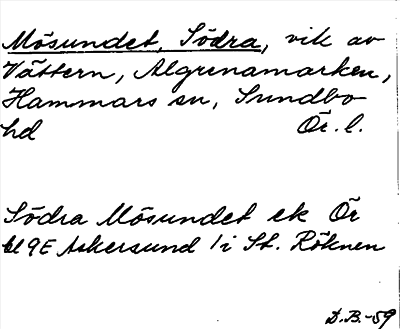 Mösundet, Södra, vik av
Vättern, Algrenamarken,
Hammars sn, Sundbo
hd Ör. l.
Södra Mösundet ek Ör
bl 9E Askersund 1i St. Röknen
D.B.-59